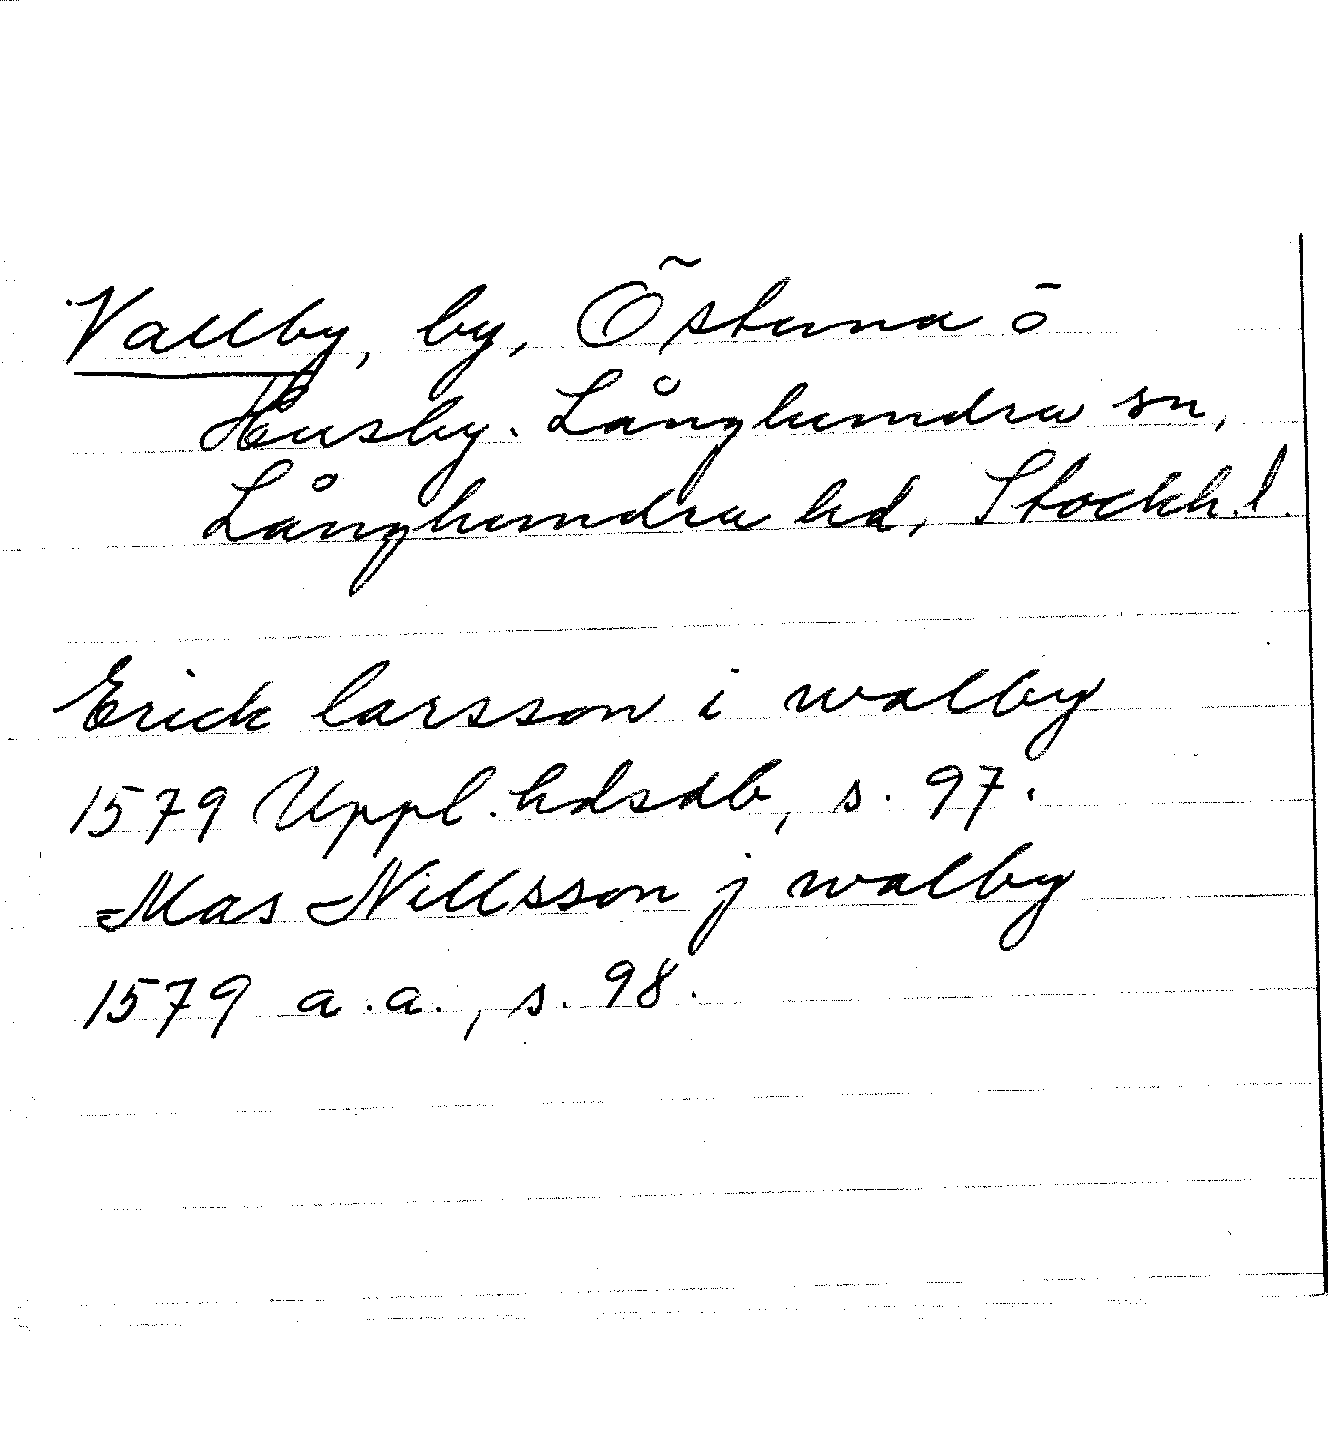 Vallby, by, Östuna o
Husby-Långhundra sn,
Långhundra hd, Stockh. l.
Erick larsson i walby
1579 Uppl. hdsdb, s. 97.
Mas Nillsson j walby
1579 a.a., s. 98.